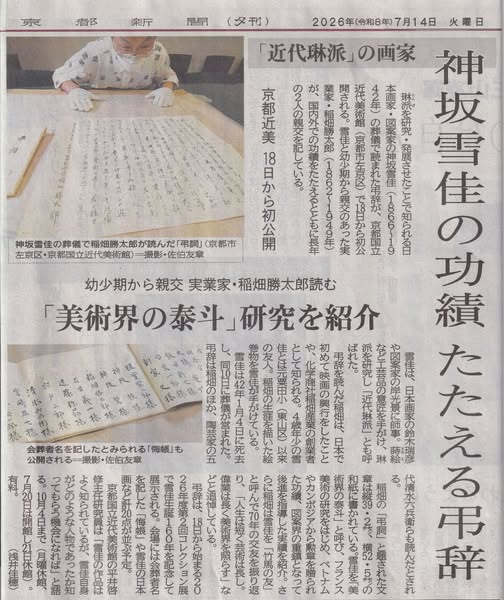 京都新聞 (夕刊)
2026年(令和8年)7月14日 火曜日
神坂雪佳の功績 たたえる弔辞
「近代琳派」の画家
京都近美 18日から初公開
琳派を研究・発展させたことで知られる日
本画家・図案家の神坂雪佳(1866〜19
42年)の葬儀で読まれた弔辞が、京都国立
近代美術館(京都市左京区)で18日から初公
開される。雪佳と幼少期から親交のあった実
業家・稲畑勝太郎(1862〜1949年)
が、国内外での功績をたたえるとともに長年
の2人の親交を記している。
神坂雪佳の葬儀で稲畑勝太郎が読んだ「弔詞」(京都市
左京区・京都国立近代美術館)=撮影・佐伯友章
幼少期から親交 実業家・稲畑勝太郎読む
「美術界の泰斗」研究を紹介
雪佳は、日本画家の鈴木瑞彦
や図案家の岸光景に師事。蒔絵
など工芸品の意匠を手がけ、琳
派を研究し「近代琳派」とも呼
ばれた。
弔辞を読んだ稲畑は、日本で
初めて映画の興行をしたこと
や、化学商社稲畑産業の創業者
として知られる。4歳年少の雪
佳とは元粟田小(東山区)以来
の友人。稲畑の生涯を描いた絵
巻物を雪佳が手がけている。
雪佳は42年1月4日に死去
し、同10日に葬儀が営まれた。
弔辞は稲畑のほか、陶芸家の五
代清水六兵衛らも読んだとされ
る。
稲畑の「弔詞」と題された文
章は縦39・2㌢、横
和紙に書かれている。雪佳を「美
術界の泰斗」と呼び、フランス
美術の研究をはじめ、ベトナム
やカンボジアから勲章を贈られ
た功績、図案界の重鎮となって
後進を指導した実績を紹介。さ
らに稲畑は雪佳を「竹馬の友」
と呼んで70年の交友を振り返
り、「人生は短く芸術は長し。
偉業は長く美術界を照らす」な
どと追悼している。
弔辞は、18日から始まる20
26年度第2回コレクション展
で雪佳生誕160年を記念して
公開される。会場には会葬者名
を記した「侮帳」や雪佳の日本
画など計80点が並ぶ予定。
京都国立近代美術館の平井啓
修主任研究員は「雪佳の作品は
よく知られているが、雪佳自身
がどのような人物であったか知
ってもらう機会になれば」と語
る。10月4日まで(月曜休館、
7月20日は開館し21日休館)。
有料。 (浅井佳穂)
会葬者名を記したとみられる「侮帳」も
公開される=撮影・佐伯友章